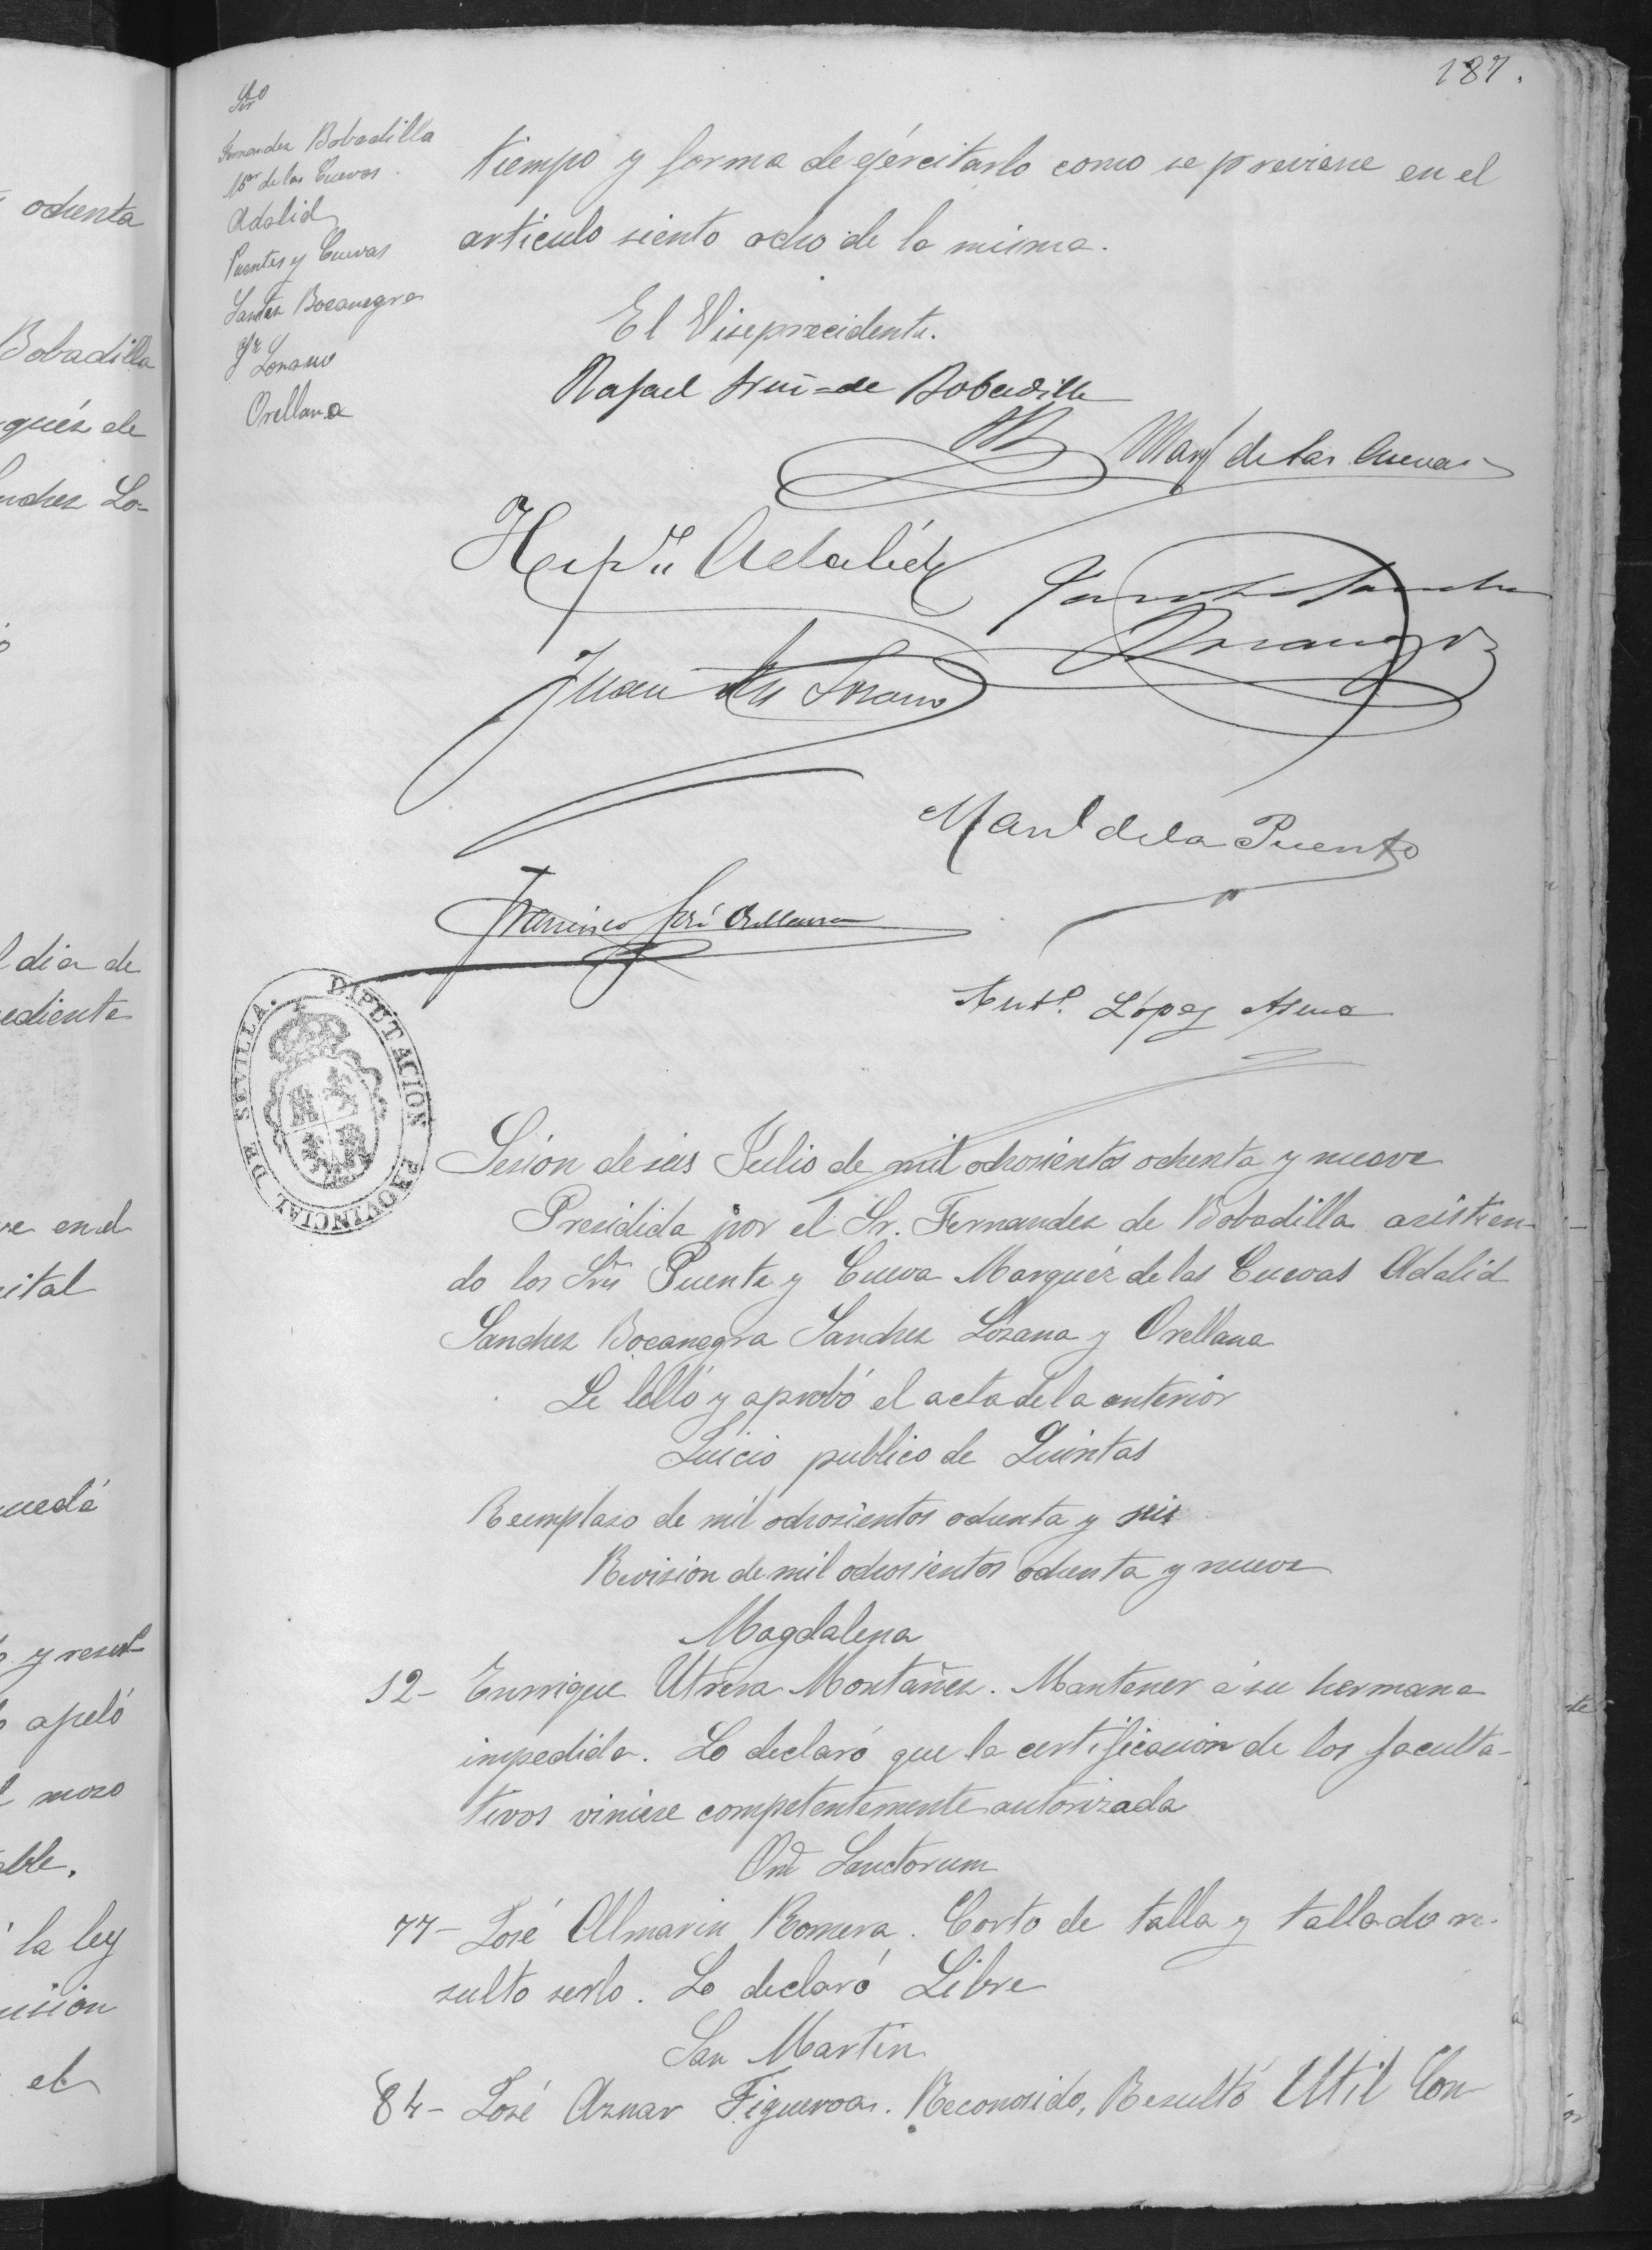 187.
Sres
Fernandez Bobadilla
Mar de las Cuevas
Adalid
Puentes y Cuevas
Sanchez Bocanegra
Lozano
Orellana
tiempo y forma de ejércitarlo como se previene en el
articulo siento ocho de la misma.
El Viseprecidente.
Rafael de Bobadilla
Marq de las Cuevas
Adalid
Juan Lozano
Manl de la Puente
Francisco José Orellana
Antº López
DIPUTACION PROVINCIAL DE SEVILLA.
Sesion de seis Julio de mil ochosientos ochenta y nueve
Presidida por el Sr. Fernandez de Bobadilla asistien-
do los Srs Puente y Cueva Marquéz de las Cuevas Adalid
Sanchez Bocanegra Sanchez Lozana y Orellana
Se lelló y aprobó el acta de la anterior
Juicio publico de Quintas
Reemplaso de mil ochosientos ochenta y seis
Revision de mil ochosientos ochenta y nueve
Magdalena
12- Enrrique Utrera Montañez. Mantener á su hermana
impedida. Lo declaró que la certificacion de los faculta-
tivos viniese competentemente autorizada
Omd Sanctorum
77- José Almarin Romera. Corto de talla y tallado re-
sulto serlo. Lo declaró Libre
San Martin
84- José Aznar Figueroa. Reconosido, Resultó Util Con
ochenta
Bobadilla
qués de
nchez Lo-
l dia de
ediente
ve en el
ital
y resul-
apeló
moso
ble.
la ley
el